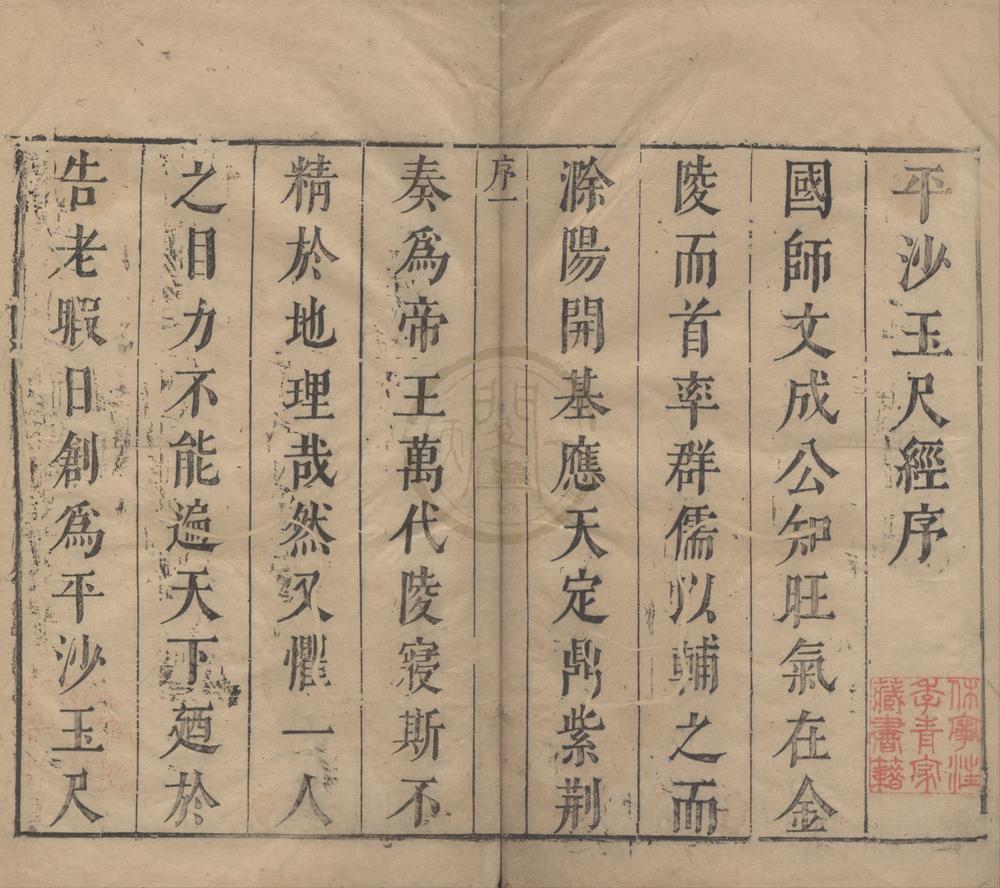 平沙玉尺經序
國師文成公知旺氣在金
陵而首率群儒以輔之而
滁陽開基應天定鼎紫荆
序一
奏爲帝王萬代陵寢斯不
精於地理哉然又懼一人
之目力不能遍天下廼於
告老暇日創爲平沙玉尺
休寧汪
季青家
藏書籍